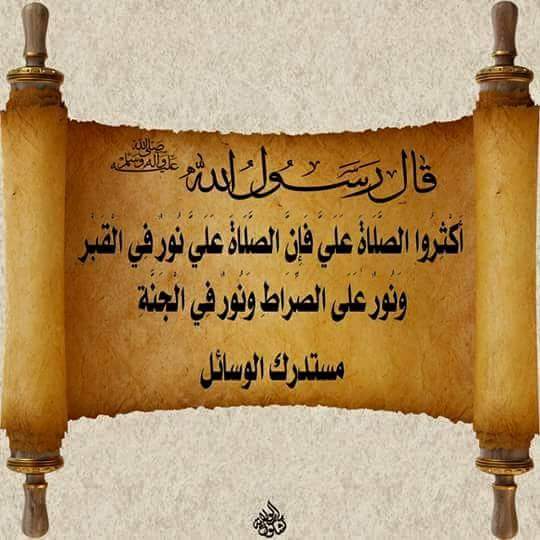 قال رسول الله صلى الله عليه وآله وسلم
أَكْثِرُوا الصَّلَاةَ عَلَيَّ فَإِنَّ الصَّلَاةَ عَلَيَّ نُورٌ فِي الْقَبْرِ
وَنُورٌ عَلَى الصِّرَاطِ وَنُورٌ فِي الْجَنَّةِ
مستدرك الوسائل